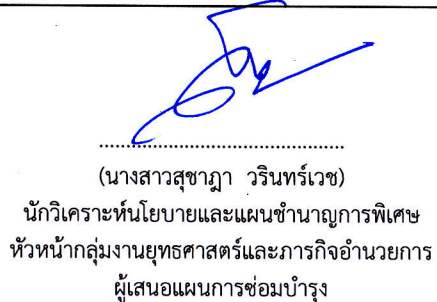 (นางสาวสุชาฎา วรินทร์เวช)
นักวิเคราะห์นโยบายและแผนชำนาญการพิเศษ
หัวหน้ากลุ่มงานยุทธศาสตร์และภารกิจอำนวยการ
ผู้เสนอแผนการซ่อมบำรุง